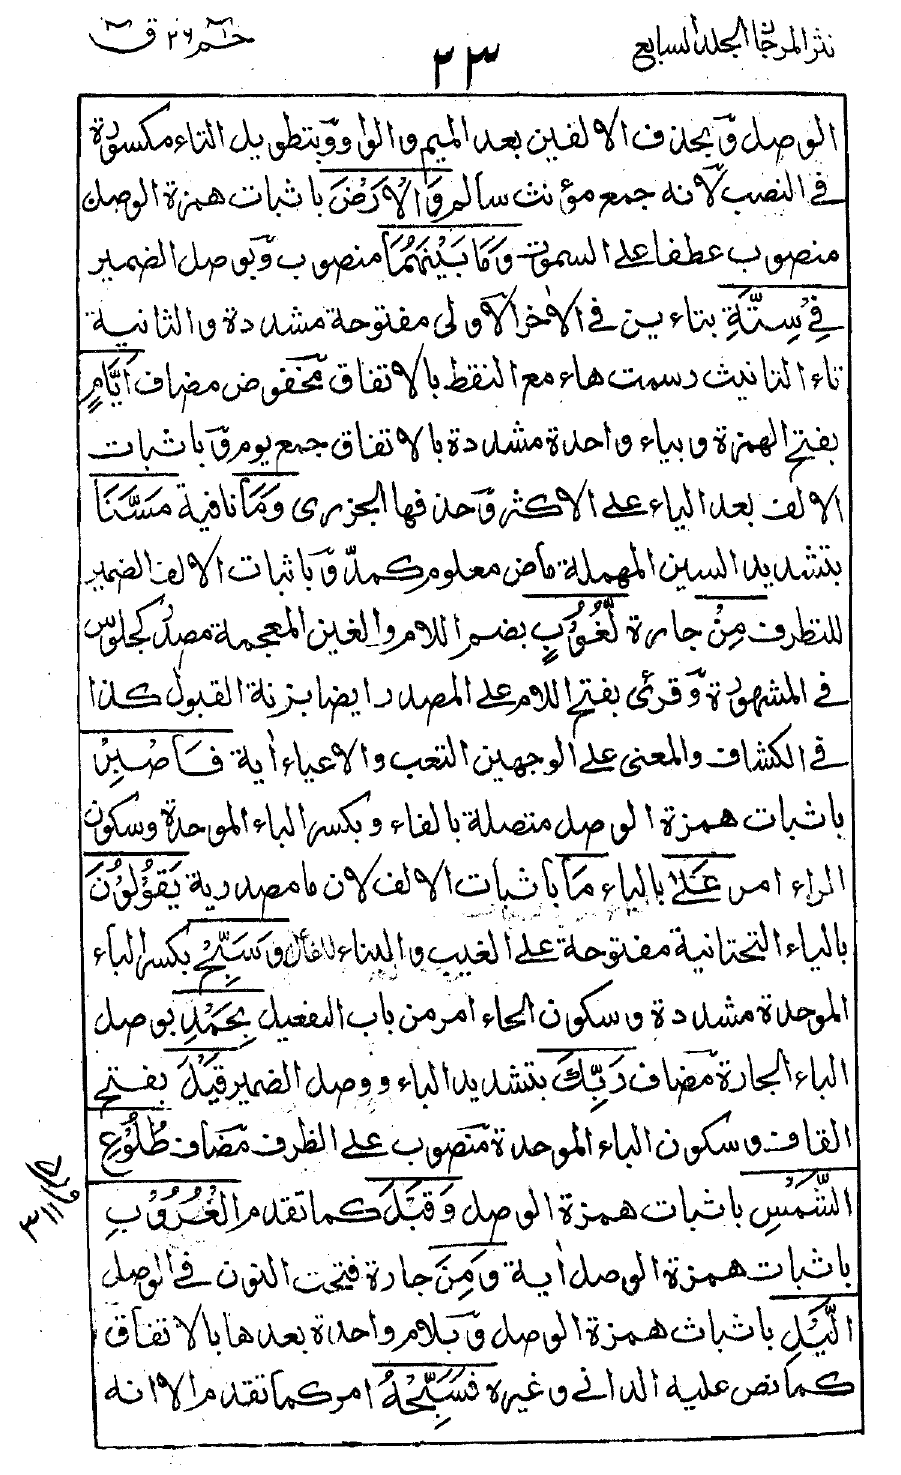 نثر المرجان المجلد السابع
٢٣
حم ٢٦ ق
الوصل وبحذف الالفين بعد الميم والواو وبتطويل التاء مكسورة
في النصب لانه جمع مؤنث سالم وَالْاَرْضَ باثبات همزة الوصل
منصوب عطفا على السموت وَمَا بَيْنَهُمَا منصوب وبوصل الضمير
فِي سِتَّةِ بتاءين في الاخر الاولى مفتوحة مشددة والثانية
تاء التانيث رسمت هاء مع النقط بالاتفاق مخفوض مضاف اَيَّامٍ
بفتح الهمزة وبياء واحدة مشددة بالاتفاق جمع يوم وباثبات
الالف بعد الياء على الاكثر وحذفها الجزرى وَمَا نافية مَسَّنَا
بتشديد السين المهملة ماض معلوم كمدّ وباثبات الالف الضمير
للتطرف مِنْ جارة لُّغُوْبٍ بضم اللام والغين المعجمة مصدر كجلوس
في المشهورة وقرئ بفتح اللام على المصدر ايضا بزنة القبول كذا
في الكشاف والمعنى على الوجهين التعب والاعياء اٰية فَاصْبِرْ
باثبات همزة الوصل متصلة بالفاء وبكسر الباء الموحدة وسكون
الراء امر عَلٰى بالياء مَا باثبات الالف لان ما مصدرية يَقُوْلُوْنَ
بالياء التحتانية مفتوحة على الغيب والبناء للفاعل وَسَبِّحْ بكسر الباء
الموحدة مشددة وسكون الحاء امر من باب التفعيل بِحَمْدِ بوصل
الباء الجارة مضاف رَبِّكَ بتشديد الباء ووصل الضمير قَبْلَ بفتح
القاف وسكون الباء الموحدة منصوب على الظرف مضاف طُلُوْعِ
الشَّمْسِ باثبات همزة الوصل وَقَبْلَ كما تقدم الْغُرُوْبِ
باثبات همزة الوصل اٰية وَمِنَ جارة فتحت النون في الوصل
الَّيْلِ باثبات همزة الوصل وبلام واحدة بعدها بالاتفاق
كما نص عليه الداني وغيره فَسَبِّحْهُ امر كما تقدم الا انه